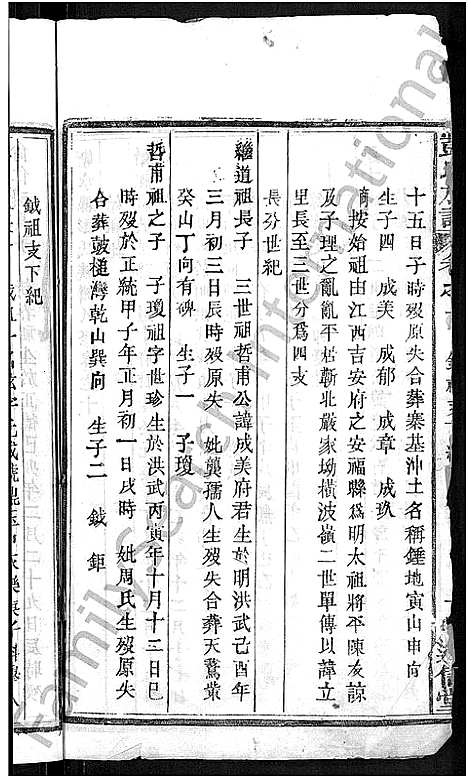 十五日子時歿原失合葬寨基沖土名稱錘地寅山申向
生子四 成美 成郁 成章 成玖
按始祖由江西吉安府之安福縣爲明太祖將平陳友諒
及子理之亂亂平居蘄北嚴家坳橫波嶺二世單傳以諱立
里長至三世分爲四支
長分世紀
繼道祖長子 三世祖哲甫公諱成美府君生於明洪武己酉年
三月初三日辰時歿原失 妣龔孺人生歿失合葬天鵞
癸山丁向有碑 生子一 子瓊
哲甫祖之子 子瓊祖字世珍生於洪武丙寅年十月十三日巳
時歿於正統甲子年正月初一日戌時 妣周氏生歿原失
合葬鼓槌灣乾山巽向 生子二 鉞 鉅
鉞祖支下紀
FamilySearch International